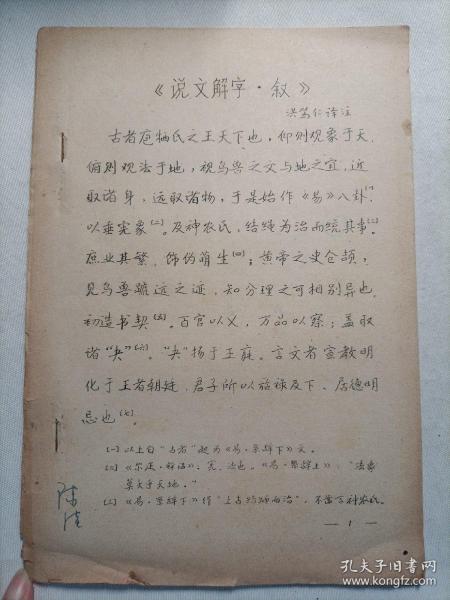 《说文解字·叙》
洪笃仁译注
古者庖牺氏之王天下也，仰则观象于天，
俯则观法于地，视鸟兽之文与地之宜，近
取诸身，远取诸物，于是始作《易》八卦[一]，
以垂宪象[二]。及神农氏，结绳为治而统其事[三]。
庶业其繁，饰伪萌生[四]；黄帝之史仓颉，
见鸟兽蹄远之迹，知分理之可相别异也，
初造书契[五]。百官以乂，万品以察；盖取
诸“夬”[六]。“夬”扬于王庭。言文者宣教明
化于王者朝廷，君子所以施禄及下、居德明
忌也[七]。
[一]以上自“古者”起为《易·系辞下》文。
[二]《尔雅·释诂》：宪，法也。《易·系辞上》：“法象
莫大乎天地。”
[三]《易·系辞下》作“上古结绳而治”，不言神农氏。
— 1 —
孔夫子旧书网
www.kongfz.com